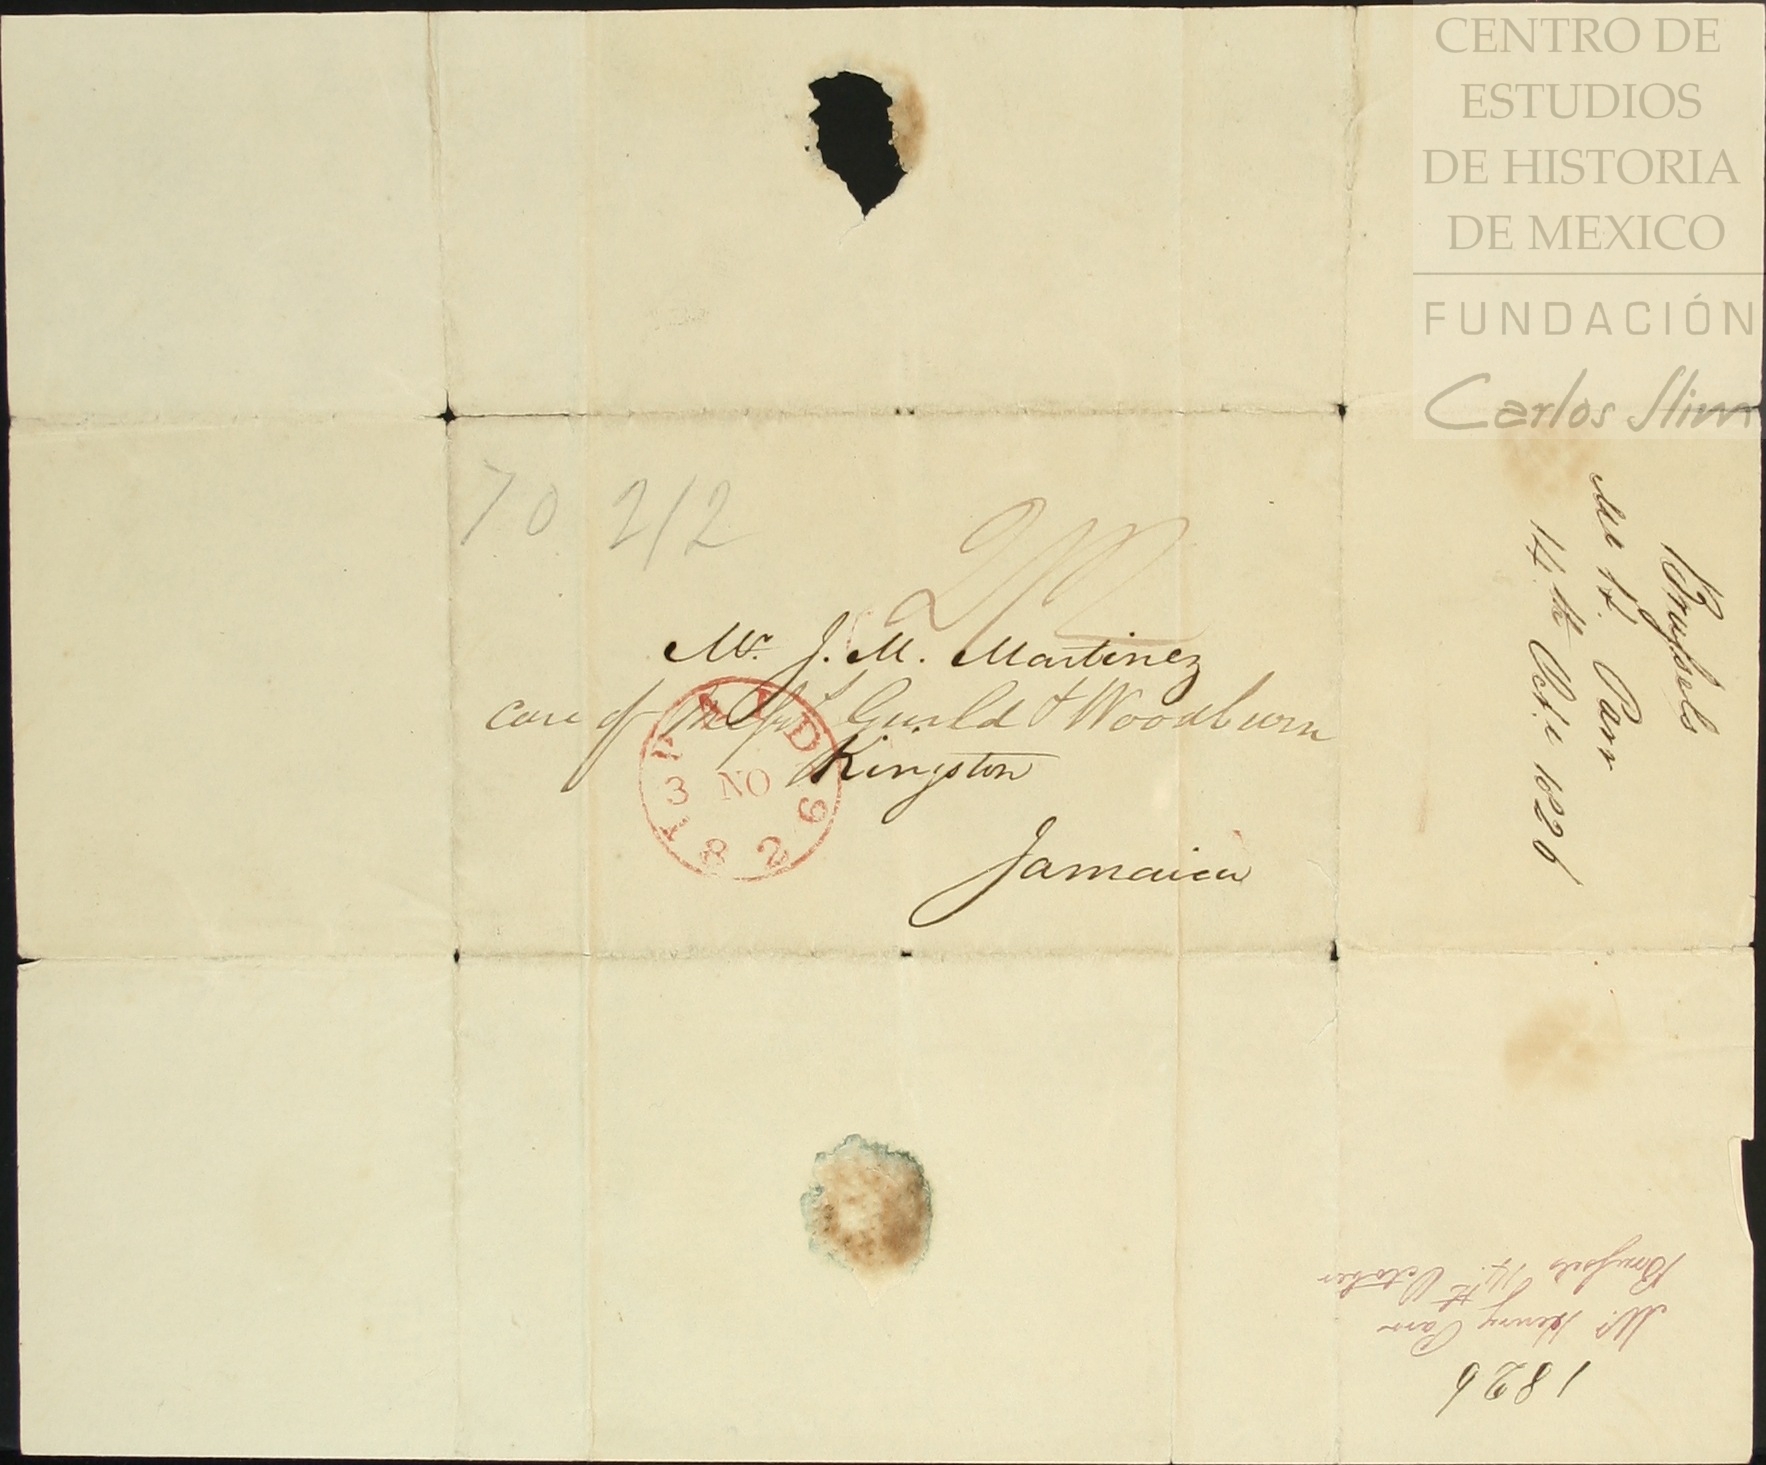 CENTRO DE
ESTUDIOS
DE HISTORIA
DE MEXICO
FUNDACIÓN
Carlos Slim
70 2/2
Mr. J. M. Martinez
care of Messrs Guild & Woodburn
Kingston
Jamaica
PAID
3 NO
1826
Brussels
H. Parr
14.th Oct.r 1826
1826
Mr. Henry Parr
Brussels 14.th October